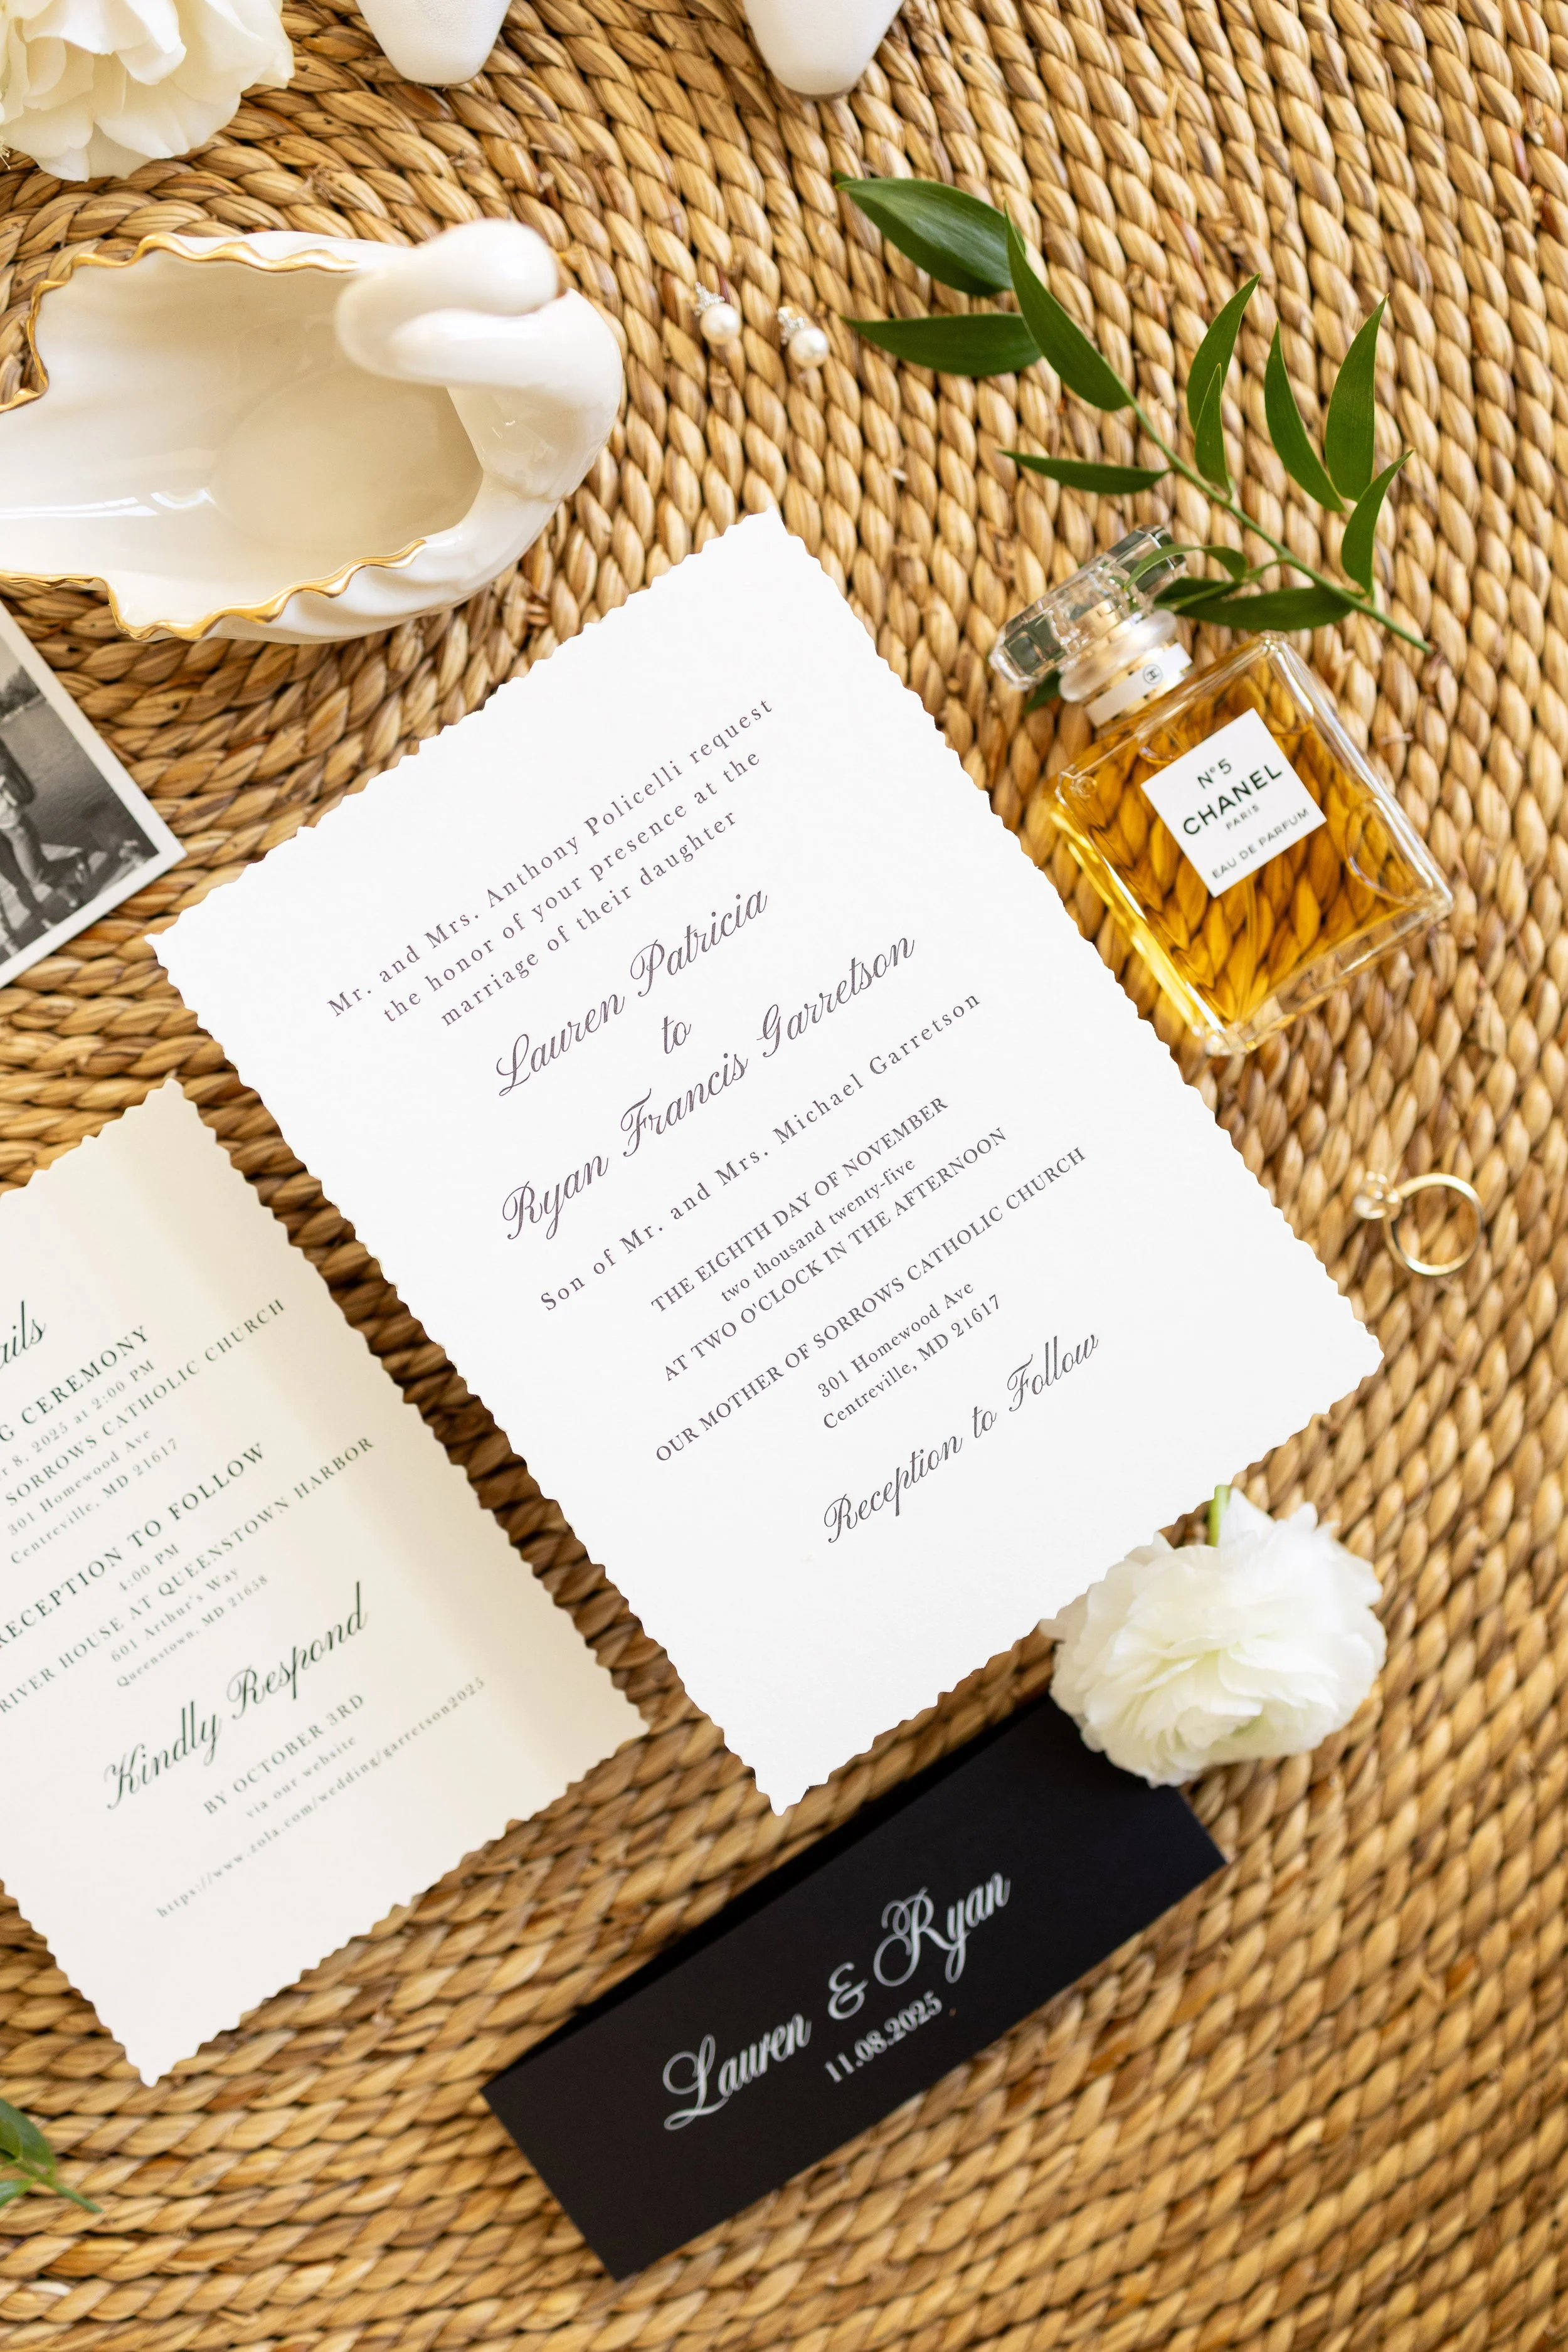 Mr. and Mrs. Anthony Policelli request
the honor of your presence at the
marriage of their daughter
Lauren Patricia
to
Ryan Francis Garretson
Son of Mr. and Mrs. Michael Garretson
THE EIGHTH DAY OF NOVEMBER
two thousand twenty-five
AT TWO O'CLOCK IN THE AFTERNOON
OUR MOTHER OF SORROWS CATHOLIC CHURCH
301 Homewood Ave
Centreville, MD 21617
Reception to Follow
N°5
CHANEL
PARIS
EAU DE PARFUM
CEREMONY
8, 2025 at 2:00 PM
SORROWS CATHOLIC CHURCH
301 Homewood Ave
Centreville, MD 21617
RECEPTION TO FOLLOW
4:00 PM
RIVER HOUSE AT QUEENSTOWN HARBOR
601 Arthur's Way
Queenstown, MD 21658
Kindly Respond
BY OCTOBER 3RD
via our website
https://www.zola.com/wedding/garretson2025
Lauren & Ryan
11.08.2025